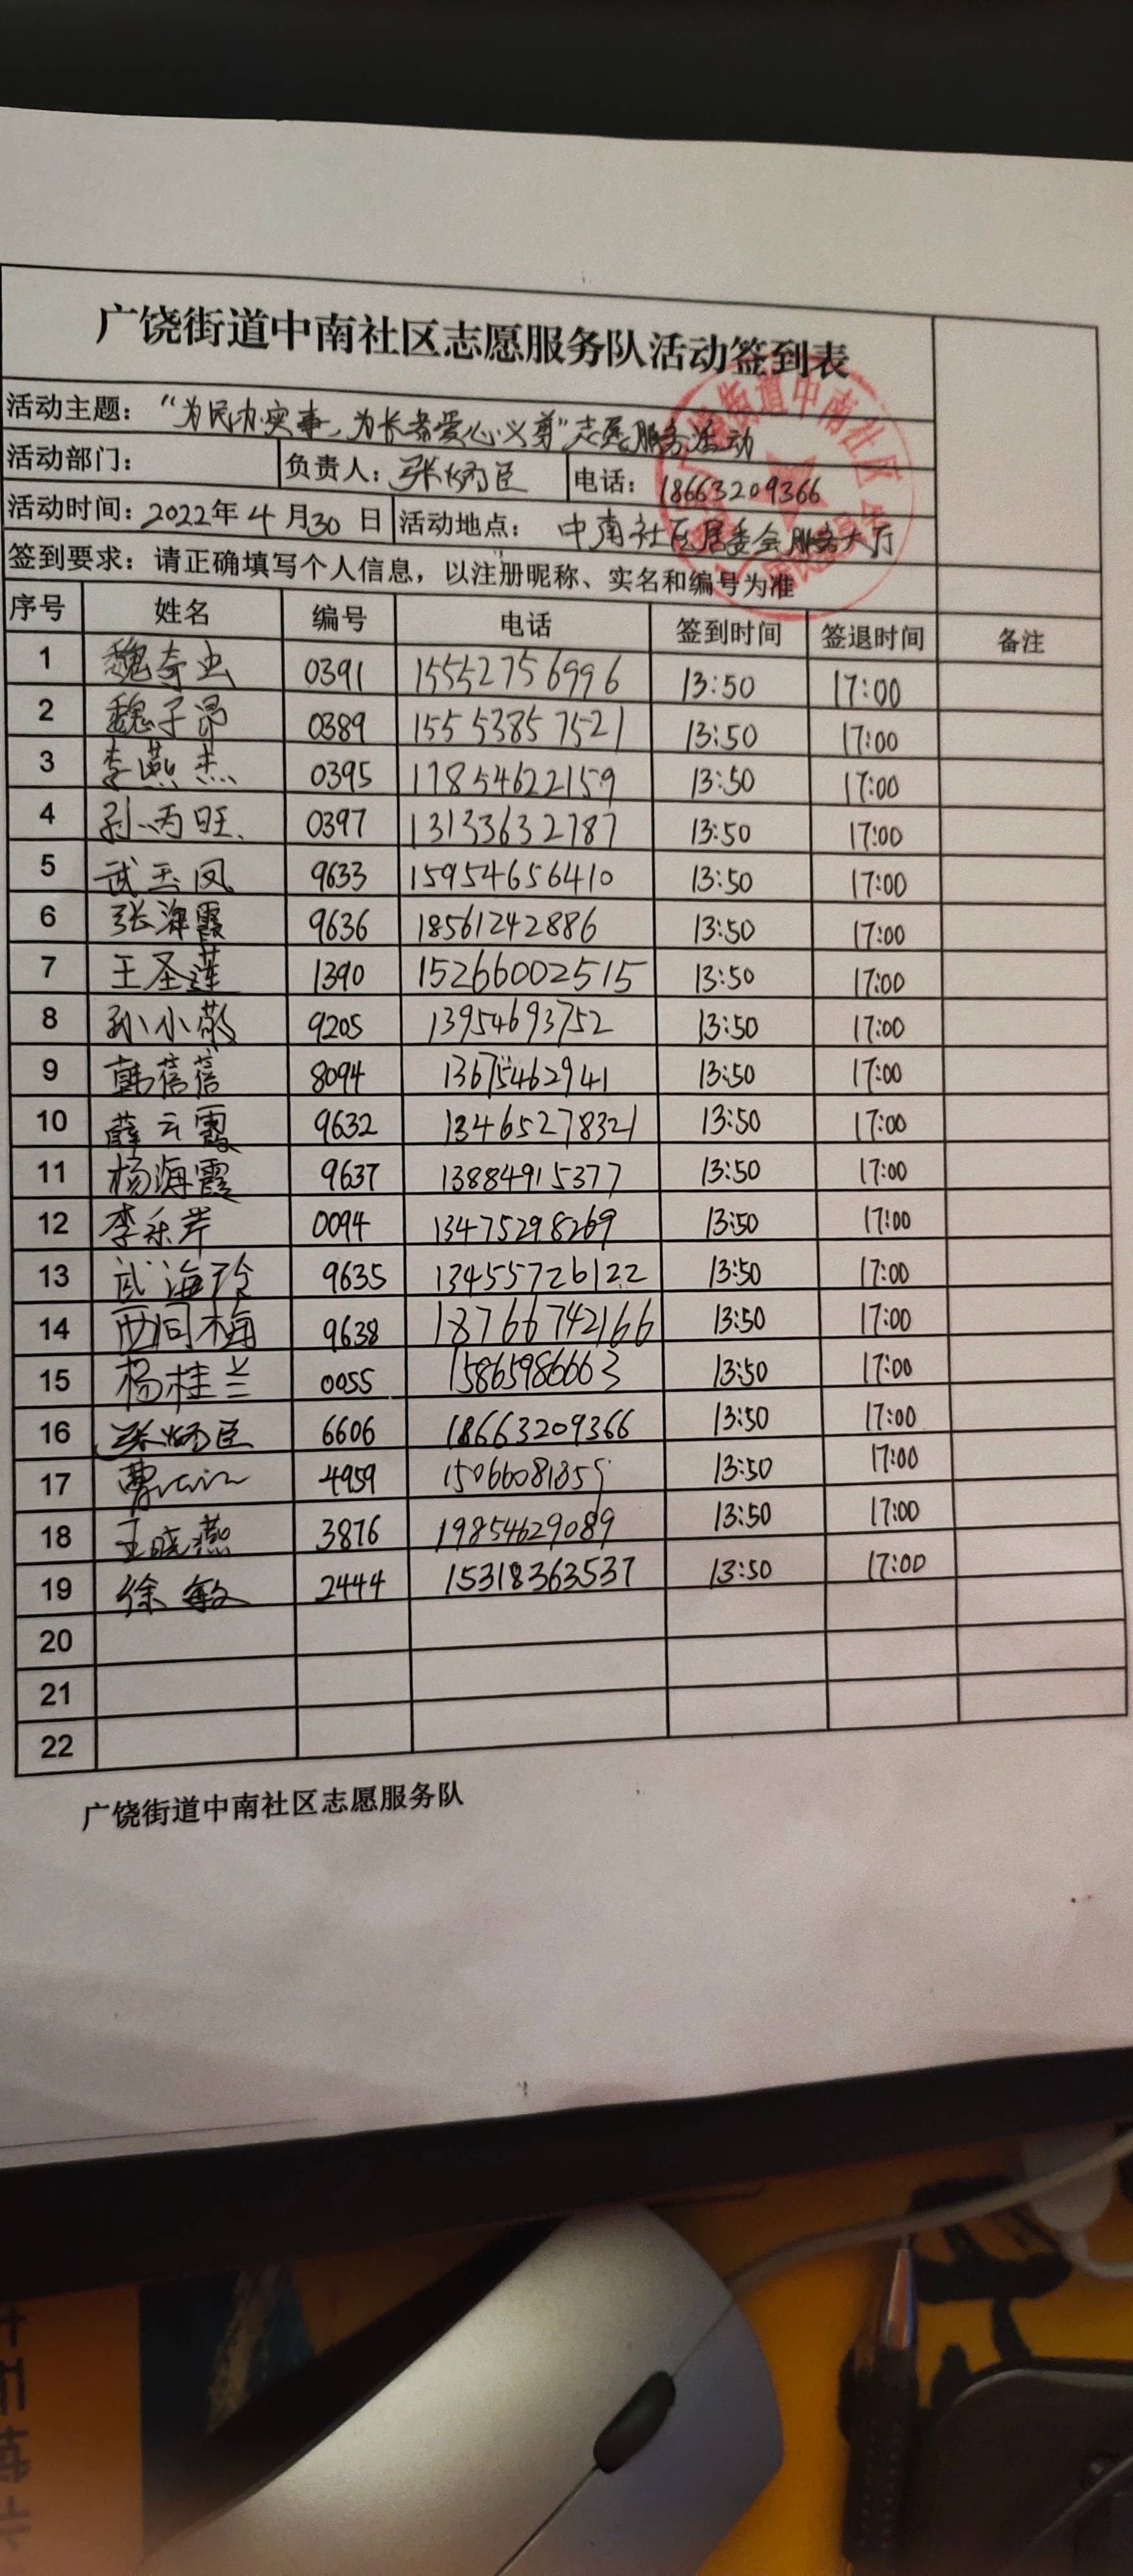 广饶街道中南社区志愿服务队活动签到表
活动主题：“为民办实事，为长者爱心义剪”志愿服务活动
活动部门： 负责人：张炳臣 电话：18663209366
活动时间：2022年4月30日 活动地点：中南社区居委会服务大厅
签到要求：请正确填写个人信息，以注册昵称、实名和编号为准
序号 姓名 编号 电话 签到时间 签退时间 备注
1 魏奇 0391 15552756996 13:50 17:00
2 魏子昂 0389 15553857521 13:50 17:00
3 李燕杰 0395 17854622159 13:50 17:00
4 孙丙旺 0397 13133632787 13:50 17:00
5 武玉凤 9633 15954656410 13:50 17:00
6 张海霞 9636 18561242886 13:50 17:00
7 王圣莲 1390 15266002515 13:50 17:00
8 孙小敬 9205 13954693752 13:50 17:00
9 韩蓓蓓 8094 13675462941 13:50 17:00
10 薛云霞 9632 13465278321 13:50 17:00
11 杨海霞 9637 13884915377 13:50 17:00
12 李乐芹 0094 13475298269 13:50 17:00
13 武海玲 9635 13455726122 13:50 17:00
14 西同梅 9638 18766742166 13:50 17:00
15 杨桂兰 0055 15865986663 13:50 17:00
16 张炳臣 6606 18663209366 13:50 17:00
17 曹 4959 15066081855 13:50 17:00
18 王晓燕 3876 19854629089 13:50 17:00
19 徐敏 2444 15318363537 13:50 17:00
20
21
22
广饶街道中南社区志愿服务队